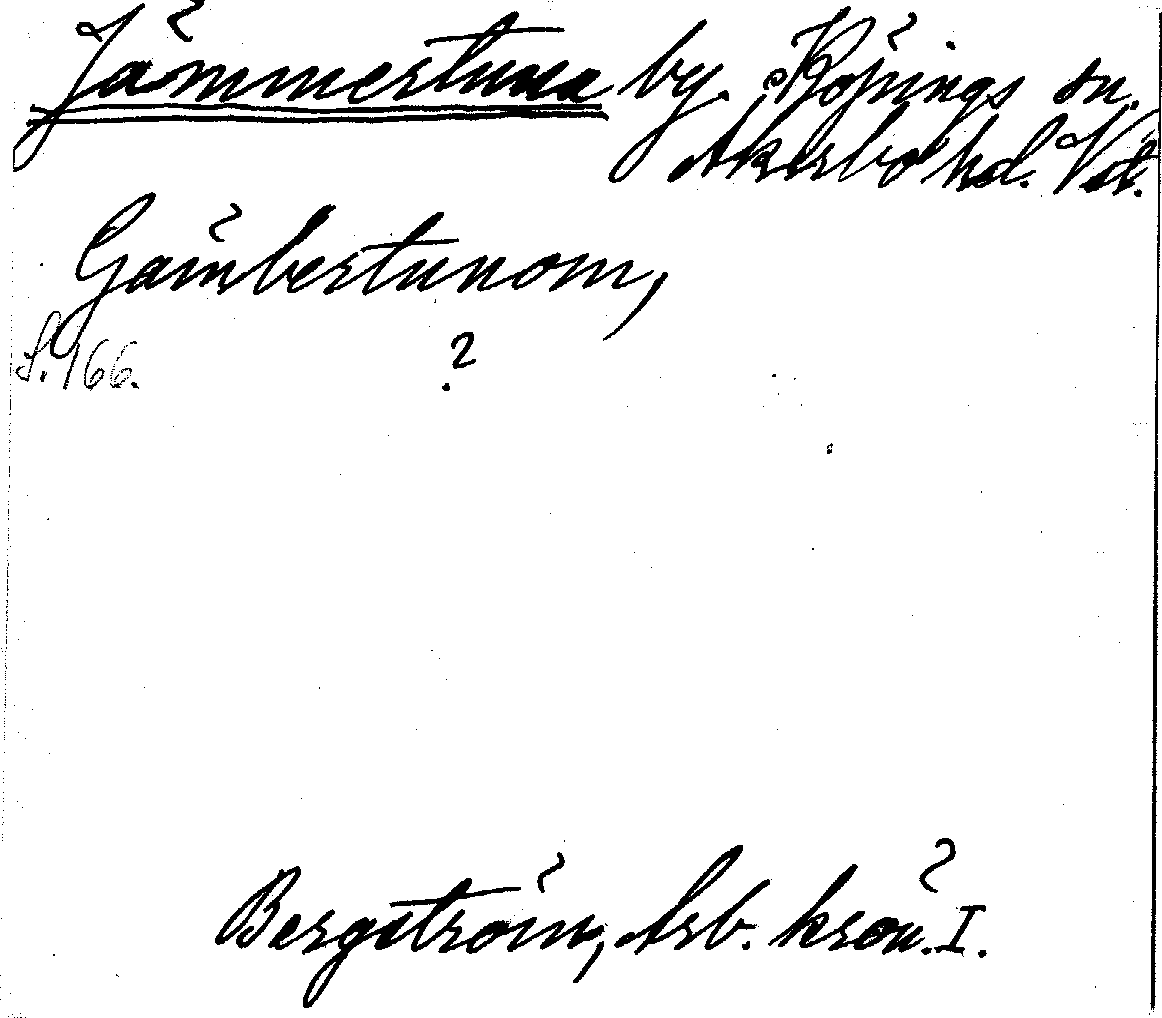 Jämmertuna by. Köpings sn.
Åkerbo hd. Vstm.
Gämbertunom,
S. 166. ?
Bergström, Arb. krön. I.